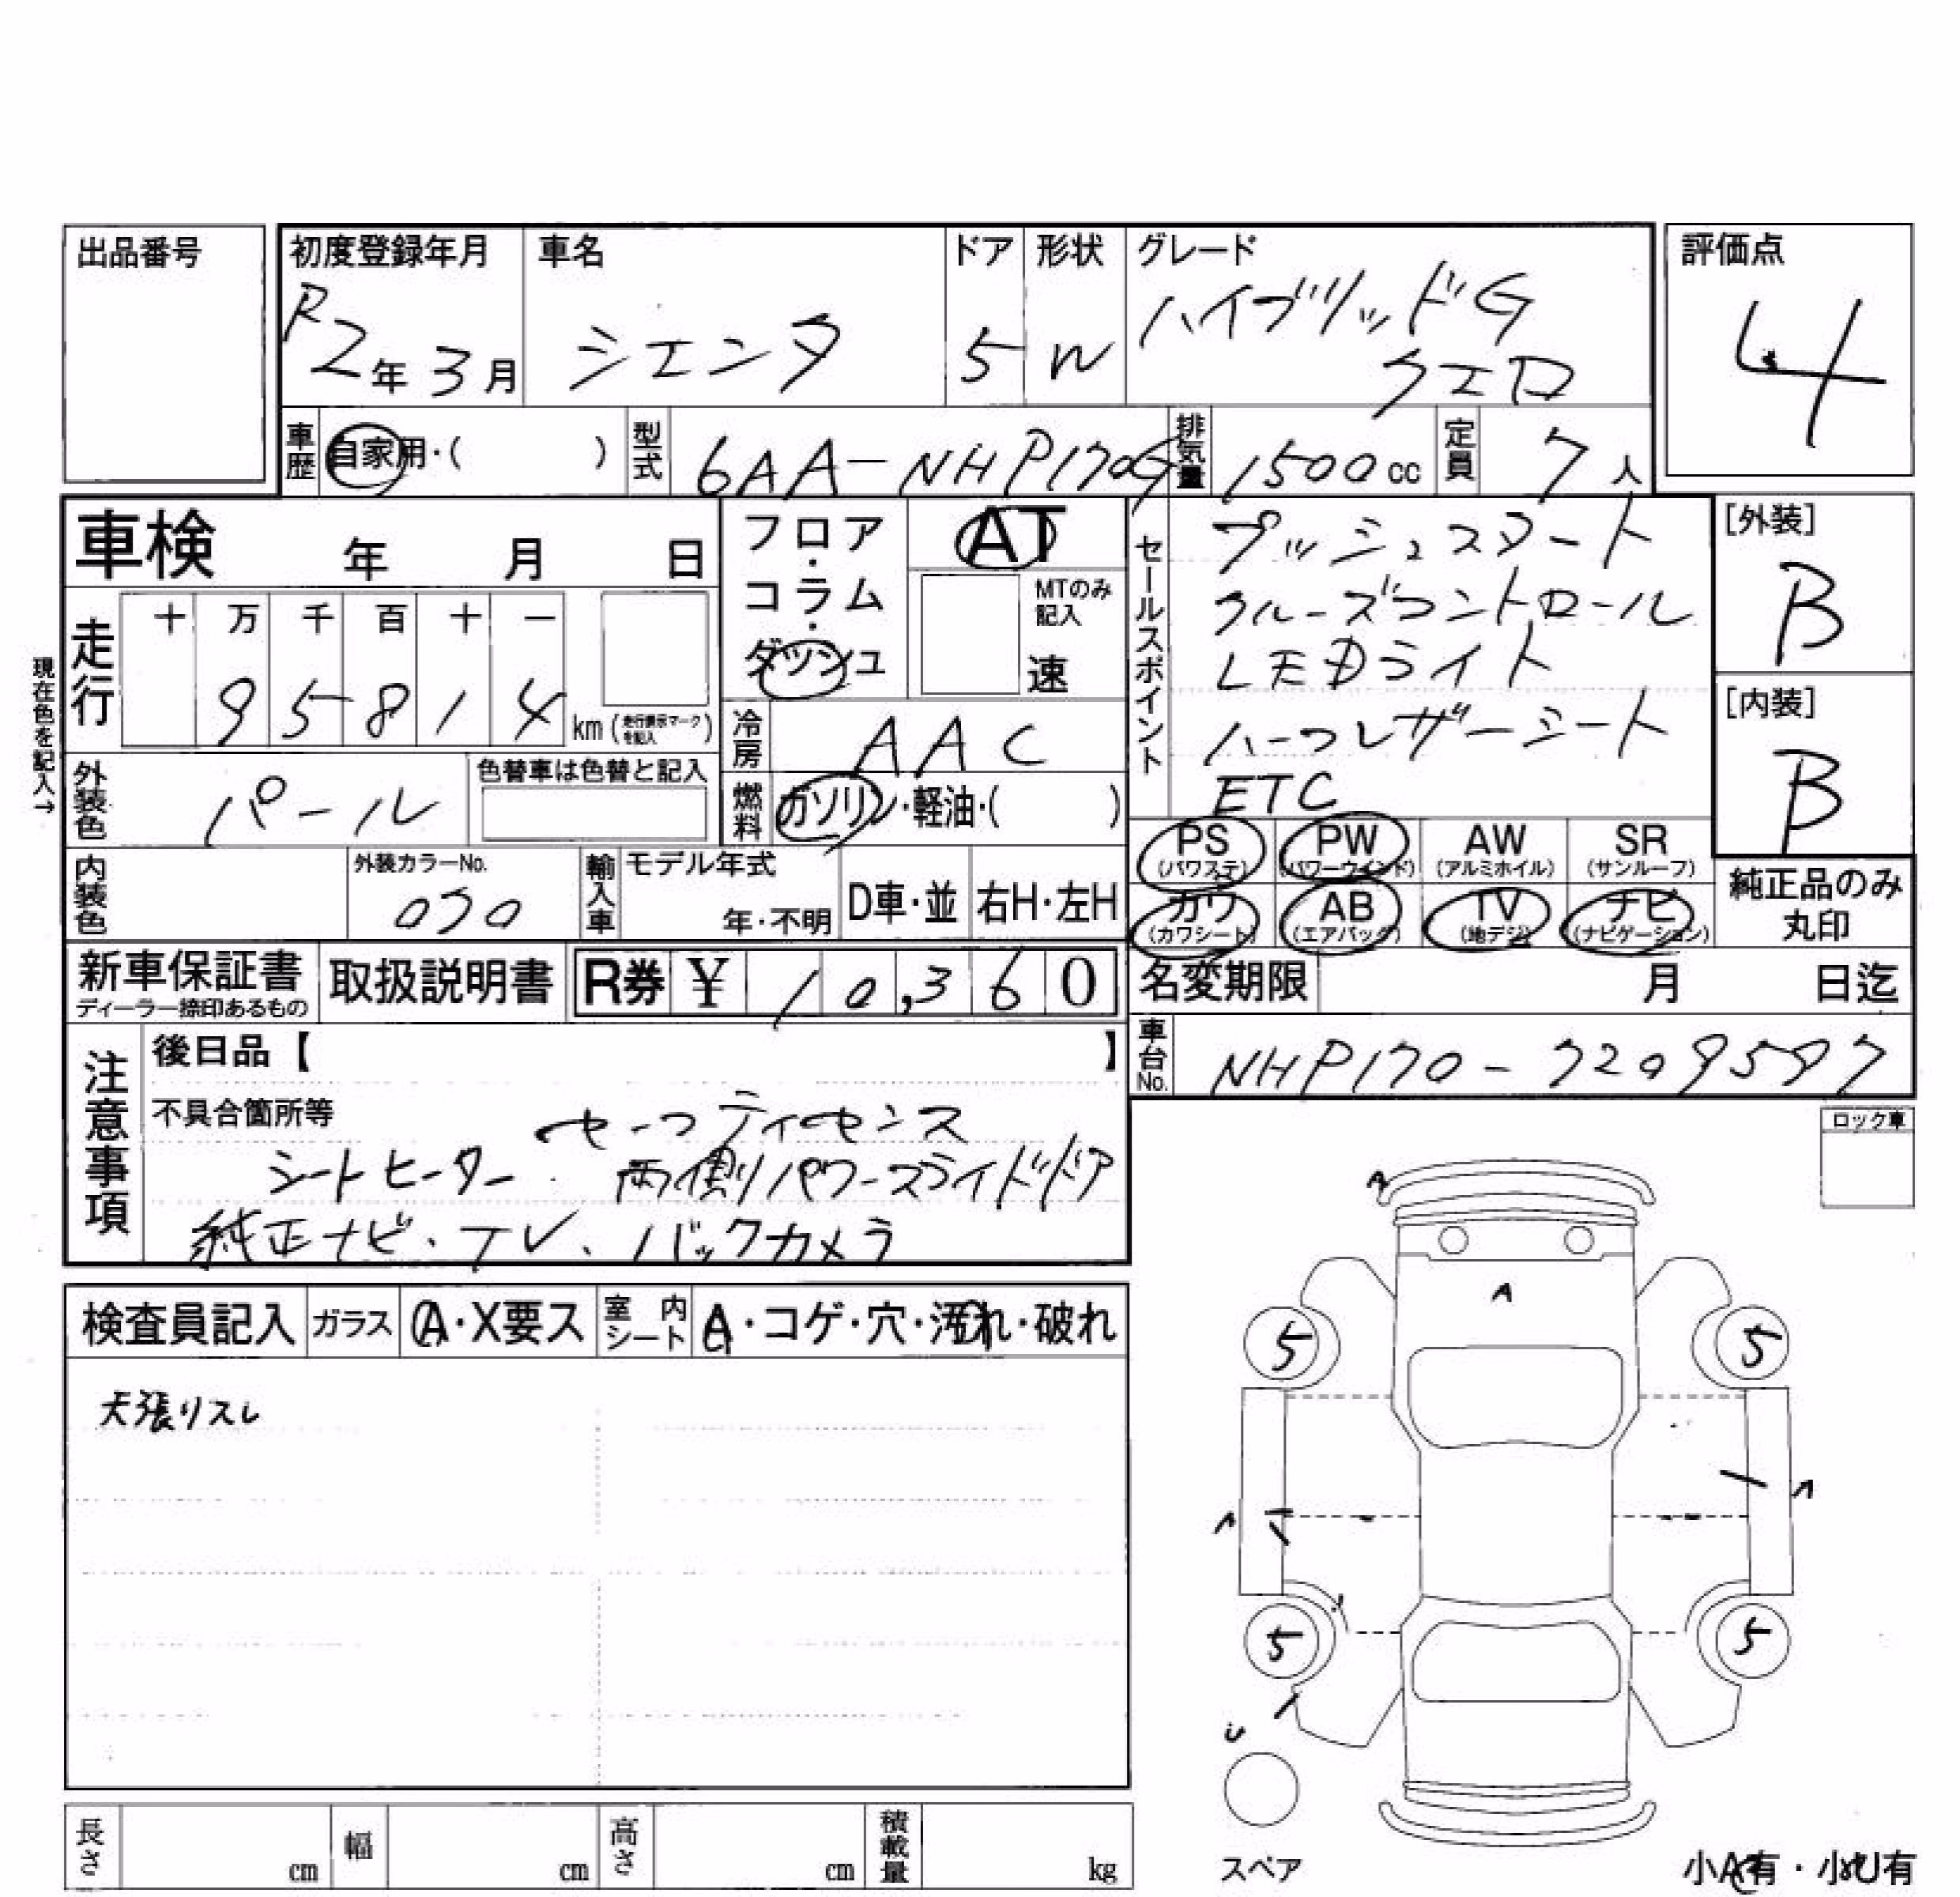 出品番号
初度登録年月 車名 ドア 形状 グレード 評価点
R2年3月 シエンタ 5 W ハイブリッドG
クエロ
4
車歴 自家用・( ) 型式 6AA-NHP170G 排気量 1500cc 定員 7人
車検 年 月 日
フロア・コラム・ダッシュ
AT
MTのみ記入
速
セールスポイント
プッシュスタート
クルーズコントロール
LEDライト
ハーフレザーシート
ETC
[外装]
B
[内装]
B
現在色を記入→
走行 十 万 千 百 十 一
95814 km (走行表示マークを記入)
冷房 AAC
外装色 パール 色替車は色替と記入
燃料 ガソリン・軽油・( )
PS (パワステ) PW (パワーウインド) AW (アルミホイル) SR (サンルーフ)
カワ (カワシート) AB (エアバック) TV (地デジ) ナビ (ナビゲーション)
純正品のみ
丸印
内装色 外装カラーNo. 070 輸入車 モデル年式 年・不明 D車・並 右H・左H
新車保証書 ディーラー捺印あるもの 取扱説明書 R券 ¥ 10,360
名変期限 月 日迄
車台No. NHP170-7209597
注意事項
後日品【 】
不具合箇所等 セーフティセンス
シートヒーター 両側パワースライドドア
純正ナビ・TV、バックカメラ
ロック車
検査員記入 ガラス A・X要ス 室内シート A・コゲ・穴・汚れ・破れ
天張りスレ
A
A
5 5
5 5
スペア
小A有・小U有
長さ cm 幅 cm 高さ cm 積載量 kg